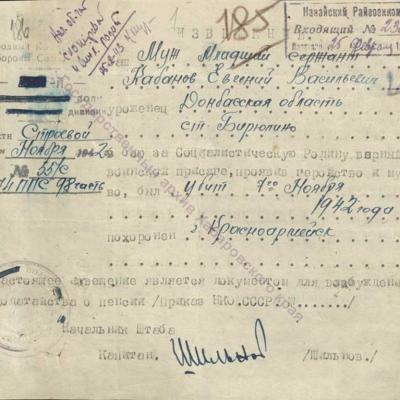 185
186
Нанайский Райвоенком
Входящий №
25
ИЗВЕЩЕНИЕ
Ваш Муж Младший сержант
Кабанов Евгений Васильевич
уроженец Донбасская область
ст Бирюлино
Строевой
Ноября 1942
в бою за Социалистическую Родину, верный
№ 55/с
воинской присяге, проявив геройство и му
ППС 98 часть
во, был убит 7го Ноября
1942 года
похоронен г Красноармейск
Государственный архив Хабаровского края
Настоящее извещение является документом для возбуждения
ходатайства о пенсии /приказ НКО.СССР №
Начальник Штаба
Капитан. /Шильнов./